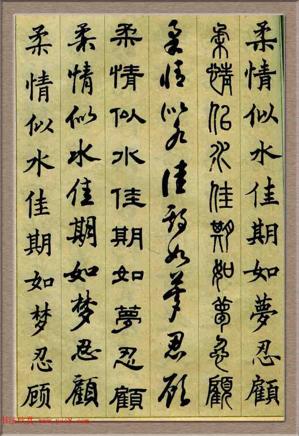 柔情似水佳期如夢忍顧
柔情佀水佳期如夢忍顧
柔情似水佳期如夢忍顾
柔情似水佳期如夢忍顧
柔情似水佳期如梦忍顧
柔情似水佳期如梦忍顾